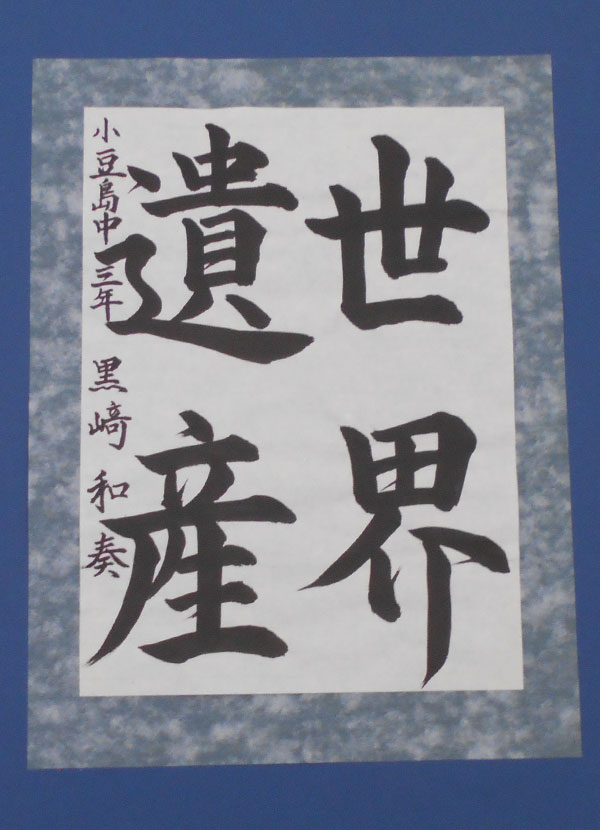 世界
遺産
小豆島中三年 黒﨑和奏